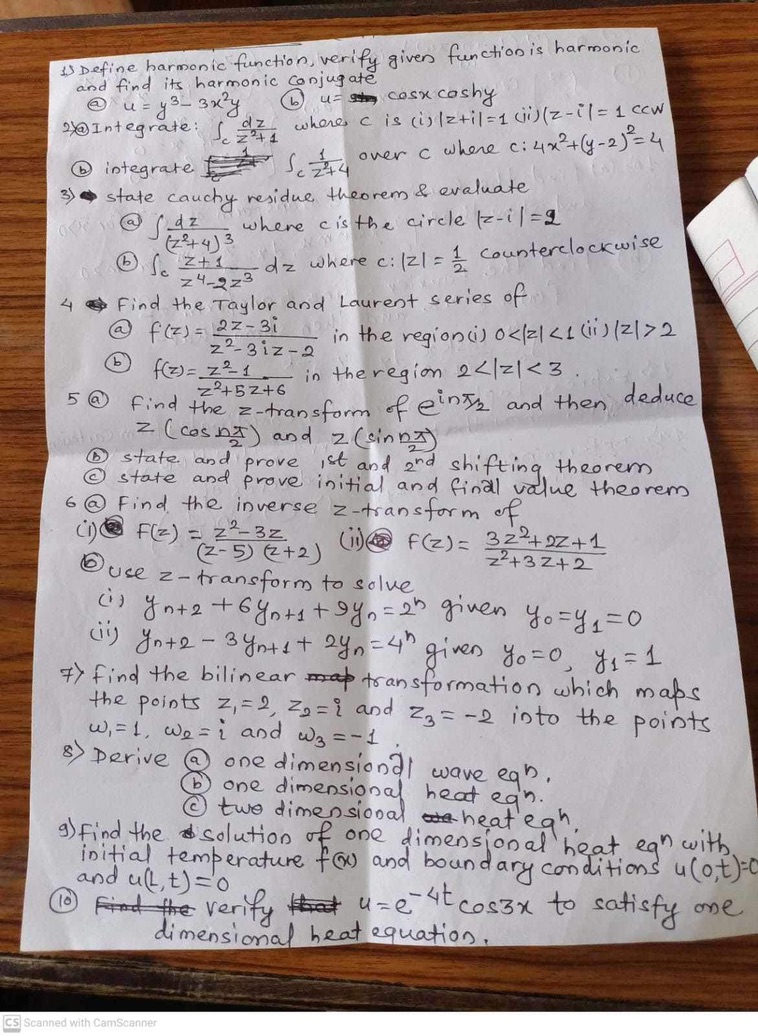 1) Define harmonic function, verify given function is harmonic
and find its harmonic conjugate
(a) u = y³ - 3x²y (b) u = cosx coshy
2) (a) Integrate: ∫c dz/(z²+1) where c is (i) |z+i|=1 (ii) |z-i|=1 ccw
(b) integrate ∫c 1/(z²+4) over c where c: 4x²+(y-2)²=4
3) state cauchy residue theorem & evaluate
(a) ∫c dz/(z²+4)³ where c is the circle |z-i|=2
(b) ∫c (z+1)/(z⁴-2z³) dz where c: |z| = 1/2 counterclockwise
4 Find the Taylor and Laurent series of
(a) f(z) = (2z-3i)/(z²-3iz-2) in the region (i) 0<|z|<1 (ii) |z|>2
(b) f(z) = (z²-1)/(z²+5z+6) in the region 2<|z|<3.
5 (a) find the z-transform of e^(inπ/2) and then deduce
z(cos nπ/2) and z(sin nπ/2)
(b) state and prove 1st and 2nd shifting theorem
(c) state and prove initial and final value theorem
6 (a) Find the inverse z-transform of
(i) F(z) = (z²-3z)/((z-5)(z+2)) (ii) F(z) = (3z²+2z+1)/(z²+3z+2)
(b) use z-transform to solve
(i) yn+2 + 6yn+1 + 9yn = 2ⁿ given y0=y1=0
(ii) yn+2 - 3yn+1 + 2yn = 4ⁿ given y0=0, y1=1
7) find the bilinear transformation which maps
the points z1=2, z2=i and z3=-2 into the points
w1=1, w2=i and w3=-1.
8) Derive (a) one dimensional wave eqn.
(b) one dimensional heat eqn.
(c) two dimensional heat eqn.
9) Find the solution of one dimensional heat eqn with
initial temperature f(x) and boundary conditions u(0,t)=0
and u(l,t)=0
(10) verify u=e^(-4t) cos3x to satisfy one
dimensional heat equation.
CS Scanned with CamScanner